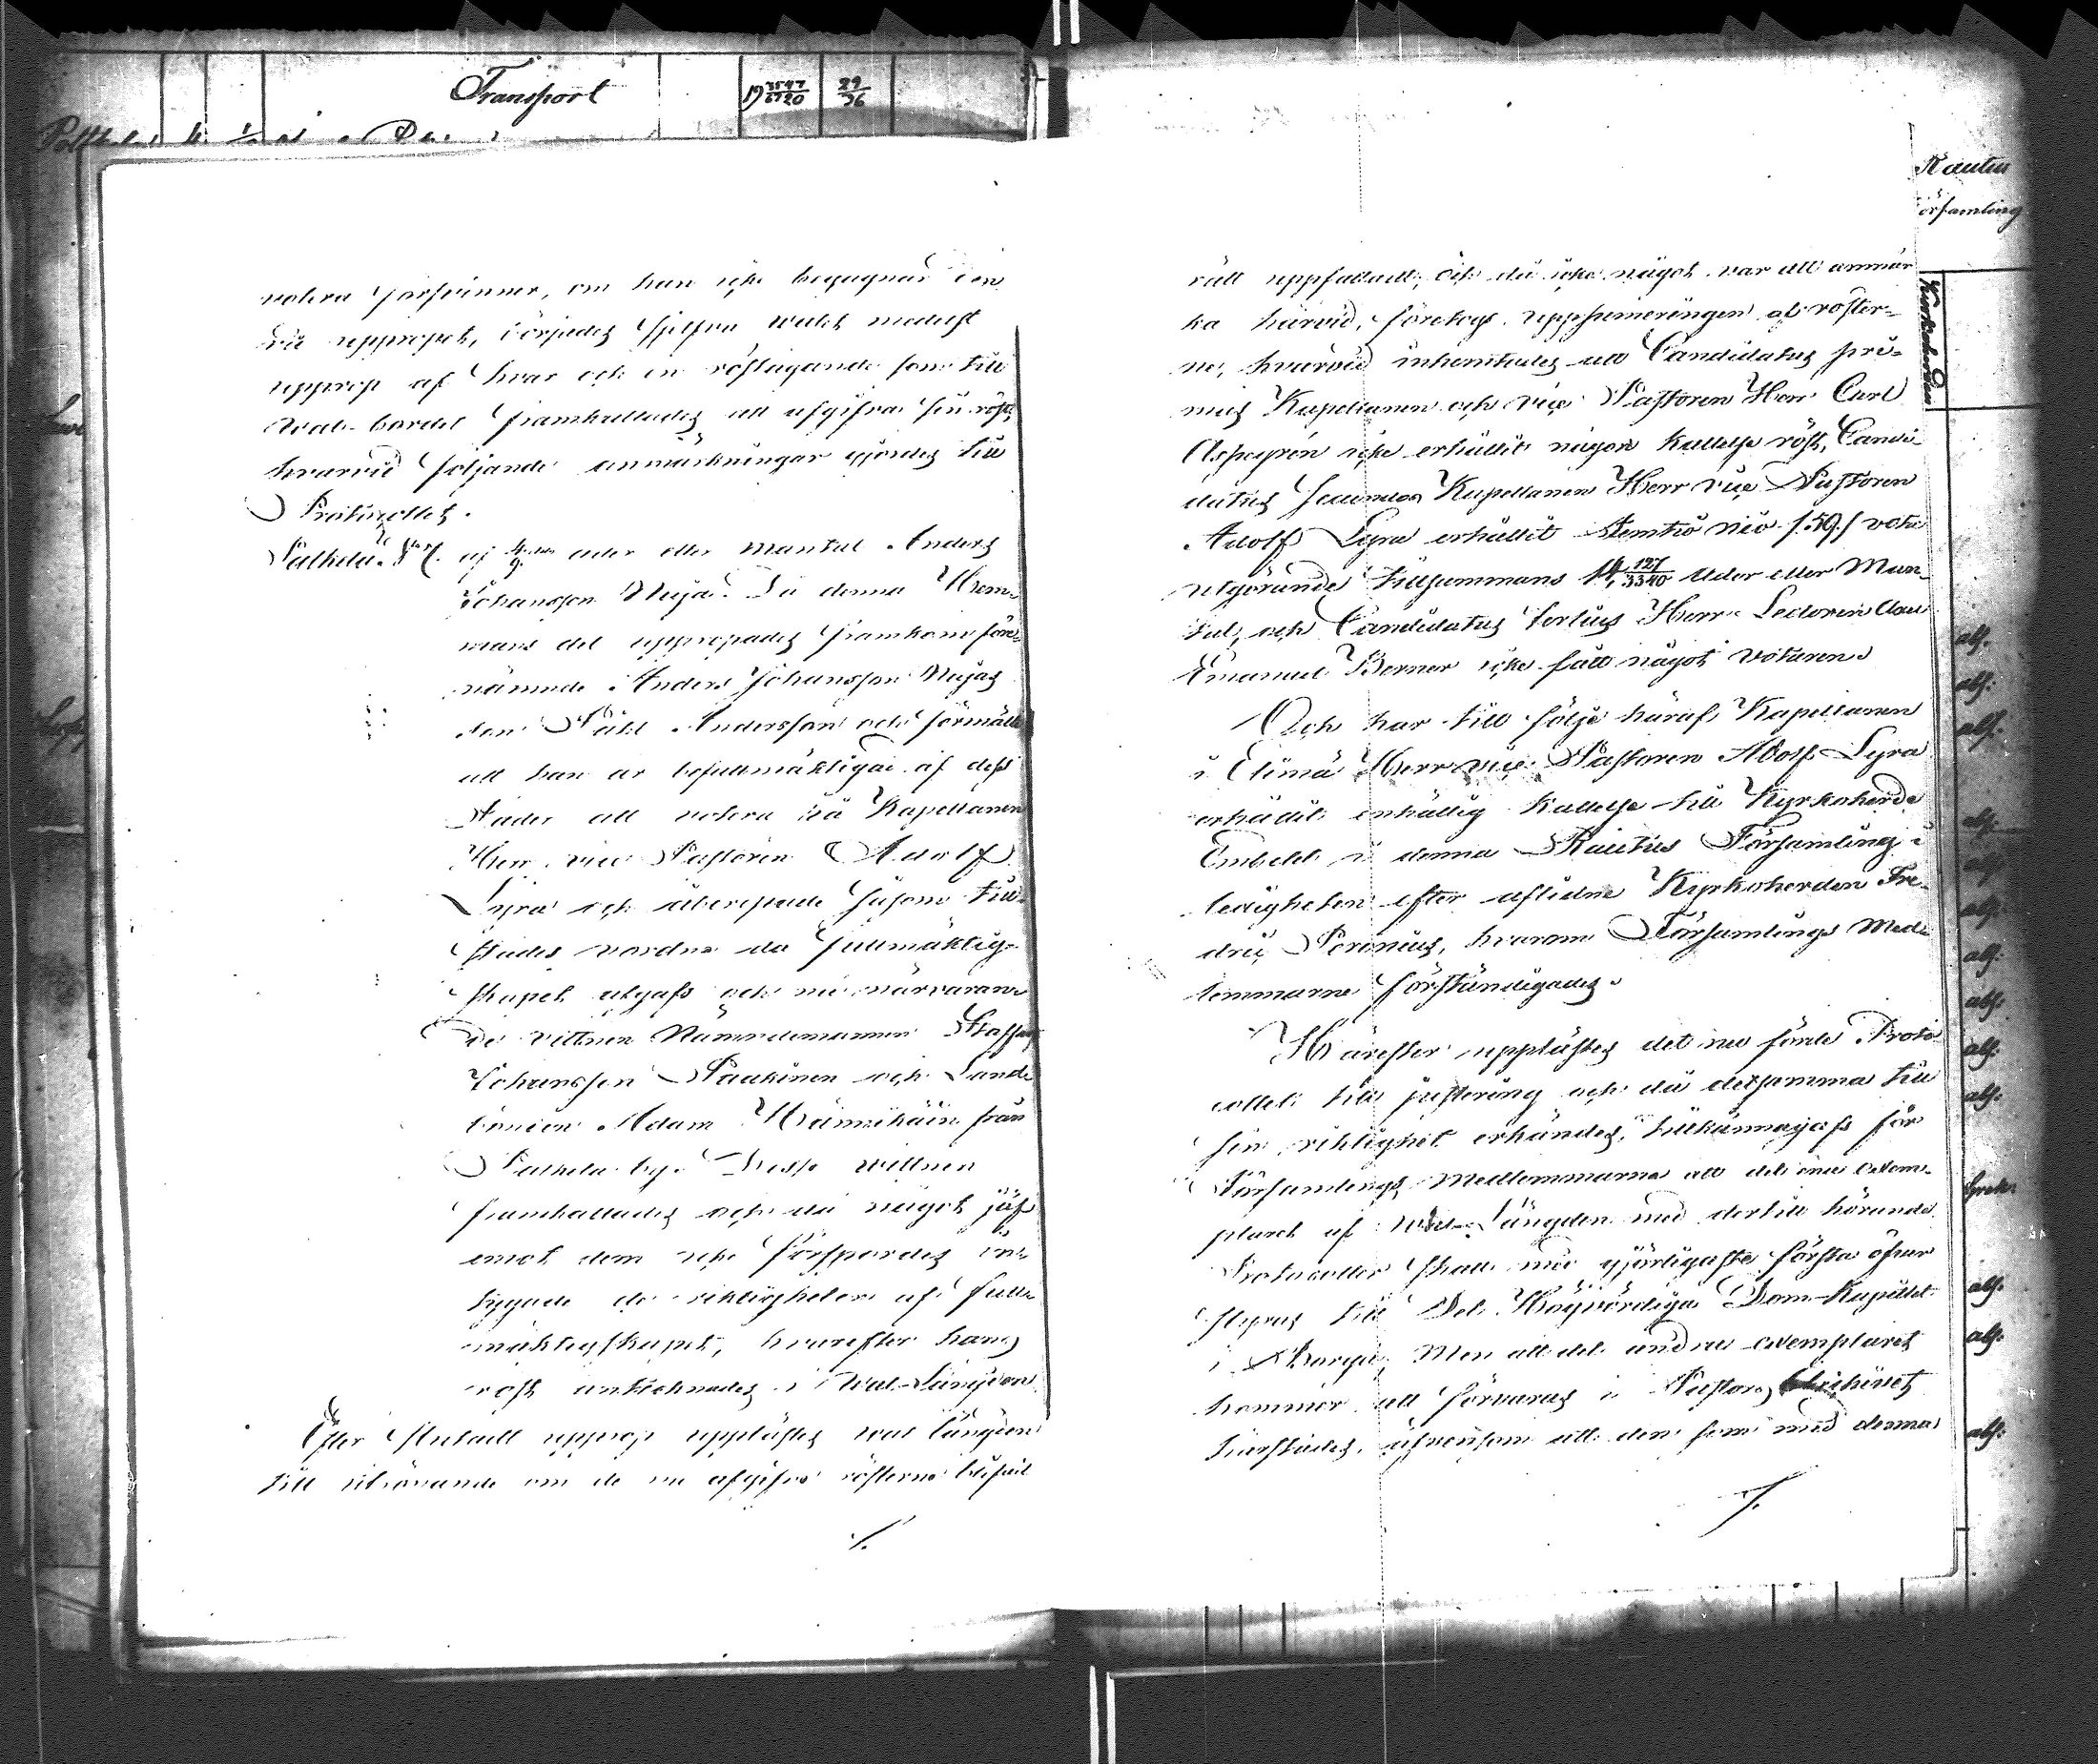 Transport
votera försvinner, om han icke begagnar den
vid uppropet, börjades sjelfva walet medelst
upprop af hvar och en röstägande som till
wal-bordet framkallades att afgifva sin röst,
hvarvid följande anmärkningar gjordes till
Protocollet.
af ader eller mantal Anders
Johansson Nuija. Då denna Hem-
mans del uppropades framkom för-
nämnde Anders Johansson Nuijas
son Påhl Andersson och förmälte
att han är befullmäktigad af dess
Fader att votera på Kapellanen
Herr vice Pastoren Adolf
Lyra och åberopade såsom till
städes vordne då fullmäktig-
skapet utgafs och nu närvaran-
de vittnen Nämndemannen Staffan
Johansson Paukinen och Land-
bonden Adam Hännikäin från
Palkela by. Desse wittnen
framkallades och då något jäf
emot dem icke förspordes be-
tygade de riktigheten af full-
mäktigskapet, hvarefter hans
röst antecknades i Wal-Längden.
Efter slutadt upprop upplästes wal längden
till utrönande om de nu afgifne rösterne blifvit
/.
rätt uppfattade; och då icke något var att anmär
ka härvid, företogs uppsummeringen af röster-
ne, hvarvid inhemtades att Candidatus pri-
mus Kapellanen och vice Pastoren Herr Carl
Aspegrén icke erhållit någon kallelse röst, Candi
datus secundus Kapellanen Herr vice Pastoren
Adolf Lyra erhållit femtio nio /:59:/ vota
utgörande tillsammans 14 127/3340 Ader eller Man-
tal, och Candidatus tertius Herr Lectoren Clas
Emanuel Berner icke fått något votum.
Och har till följe häraf, Kapellanen
i Elimä Herr vice Pastoren Adolf Lyra
erhållit enhällig kallelse till Kyrkoherde
Embetet i denna Rautus Församling i
ledigheten efter aflidne Kyrkoherden Fre-
dric Perenius, hvarom Församlings Med-
lemmarne förständigades.
Härefter upplästes det nu förde Proto
collet till justering och då detsamma till
sin riktighet erkändes, tillkännagafs för
Församlings Medlemmarna att det ena exem-
plaret af Wal-Längden med dertill hörande
Protocoller skall med görligaste första öfver
styras till Det Högvördiga Dom-Kapitlet
i Borgå, Men att det andra exemplaret
kommer att förvaras i Pastors Archivet
härstädes, äfvensom att den som med denna
/.
Rautus
örsamling
Kyrkoherde
abs.
abs.
abs.
abs.
abs.
abs.
abs.
abs.
abs.
abs.
abs.
abs.